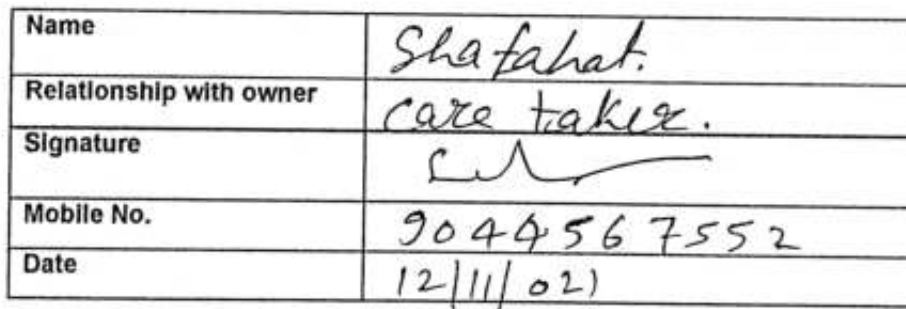 Name Shafahat.
Relationship with owner care taker.
Signature
Mobile No. 9044567552
Date 12/11/021